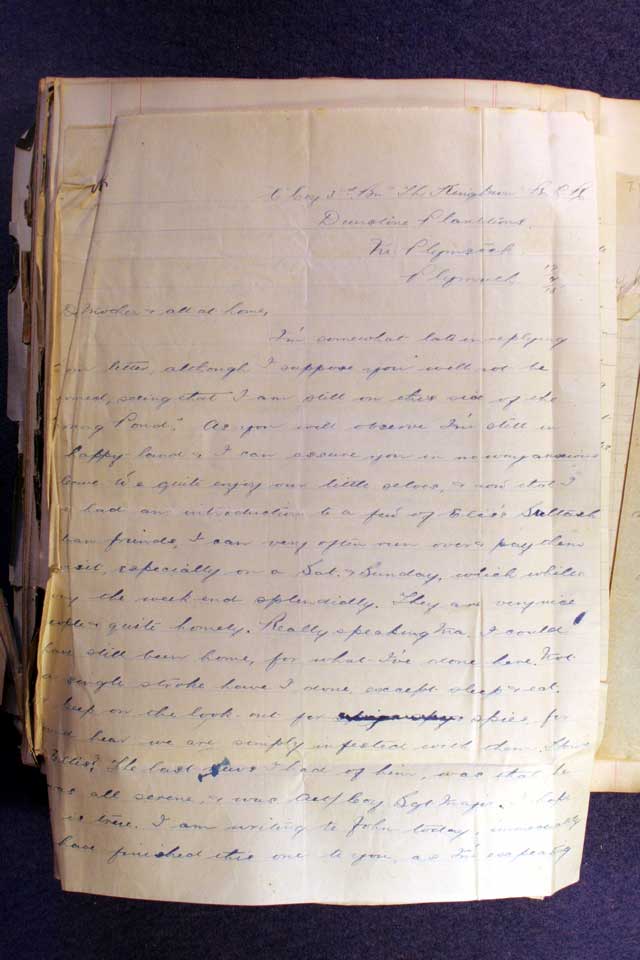 C Coy 3rd Bn The Kings Own
Plantations
Nr Plymstock
Plymouth
Mother & all at home,
I'm somewhat late in replying
letter, although I suppose you will not be
seeing that I am still on this side of the
Pond." As you will observe I'm still in
happy land & I can assure you in no way anxious
quite enjoy our little selves, & now that I
had an introduction to a few of
friends, I can very often run over & pay them
especially on a Sat. & Sunday, which whiles
the week-end splendidly. They are very nice
& quite homely. Really speaking Ma, I could
have still been home, for what I've done here. Not
a single stroke have I done, except sleep & eat.
keep on the look-out for spies, for
hear we are simply infested with them. How's
The last news I had of him, was that he
was all serene, & was Act/ Coy Sgt Major. I hope
is true. I am writing to John today, immediately
have finished this one to you, as I'm expecting